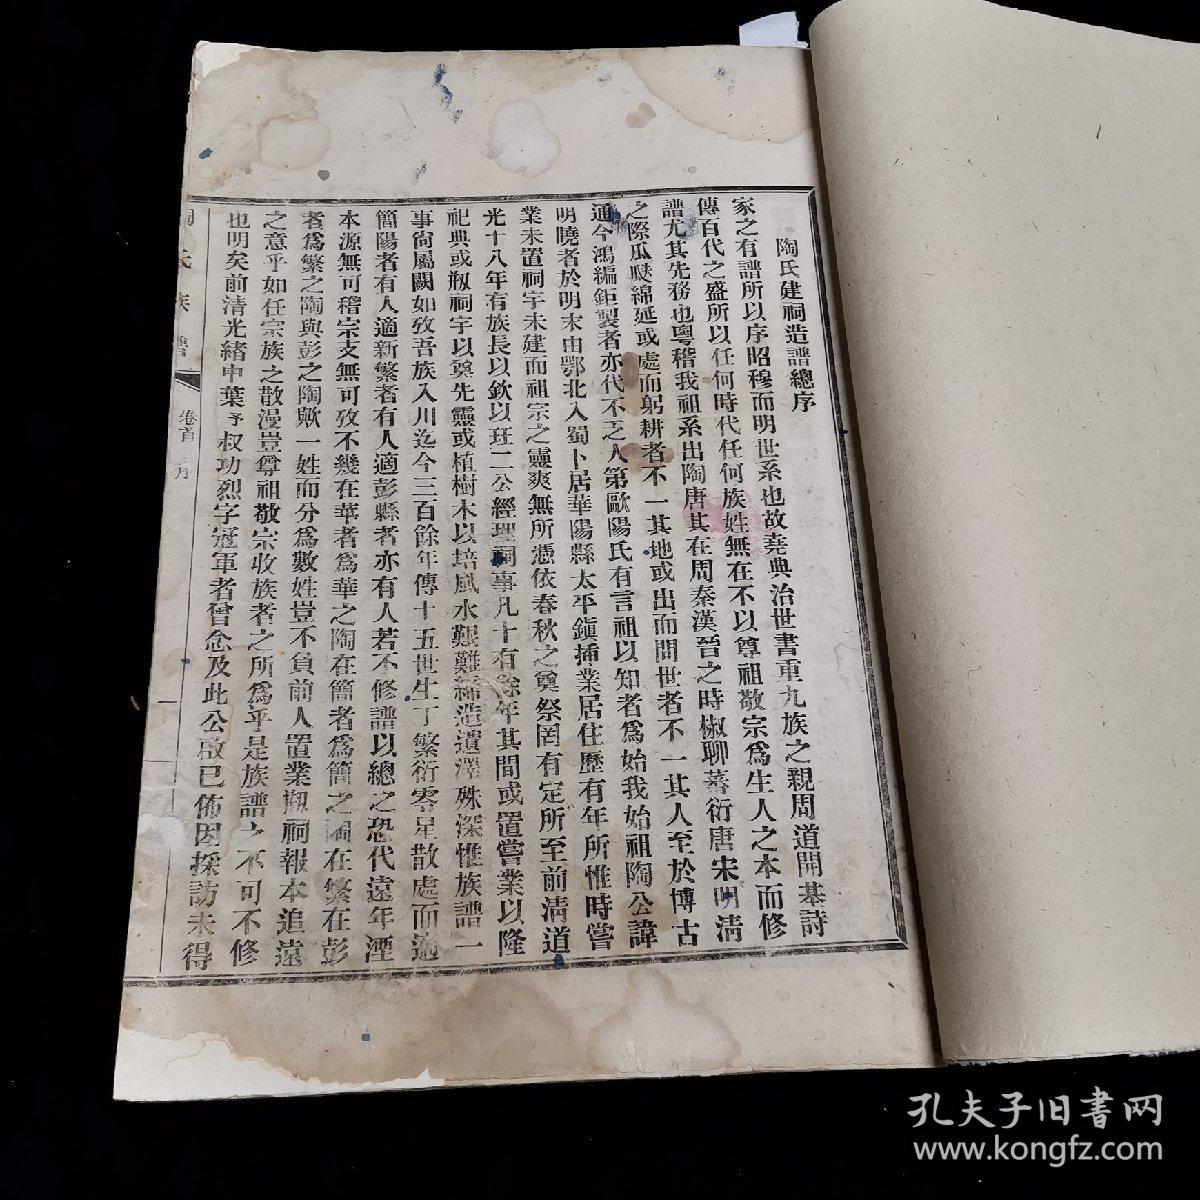 陶氏建祠造譜總序
家之有譜所以序昭穆而明世系也故堯典治世書重九族之親周道開基詩
傳百代之盛所以任何時代任何族姓無在不以尊祖敬宗爲生人之本而修
譜尤其先務也粵稽我祖系出陶唐其在周秦漢晉之時椒聊蕃衍唐宋明清
之際瓜瓞綿延或處而躬耕者不一其地或出而問世者不一其人至於博古
通今鴻編鉅製者亦代不乏人第歐陽氏有言祖以知者爲始我始祖陶公諱
明曉者於明末由鄂北入蜀卜居華陽縣太平鎭揷業居住歷有年所惟時嘗
業未置祠宇未建而祖宗之靈爽無所憑依春秋之奠祭罔有定所至前淸道
光十八年有族長以欽以珏二公經理祠事凡十有餘年其間或置嘗業以隆
祀典或剏祠宇以奠先靈或植樹木以培風水艱難締造遺澤殊深惟族譜一
事尙屬闕如攷吾族入川迄今三百餘年傳十五世生丁繁衍零星散處而適
簡陽者有人適新繁者有人適彭縣者亦有人若不修譜以總之恐代遠年湮
本源無可稽宗支無可攷不幾在華者爲華之陶在簡者爲簡之陶在繁在彭
者爲繁之陶與彭之陶歟一姓而分爲數姓豈不負前人置業剏祠報本追遠
之意乎如任宗族之散漫豈尊祖敬宗收族者之所爲乎是族譜之不可不修
也明矣前清光緒中葉予叔功烈字冠軍者曾念及此公啟已佈因採訪未得
陶氏族譜
卷首
孔夫子旧书网
www.kongfz.com